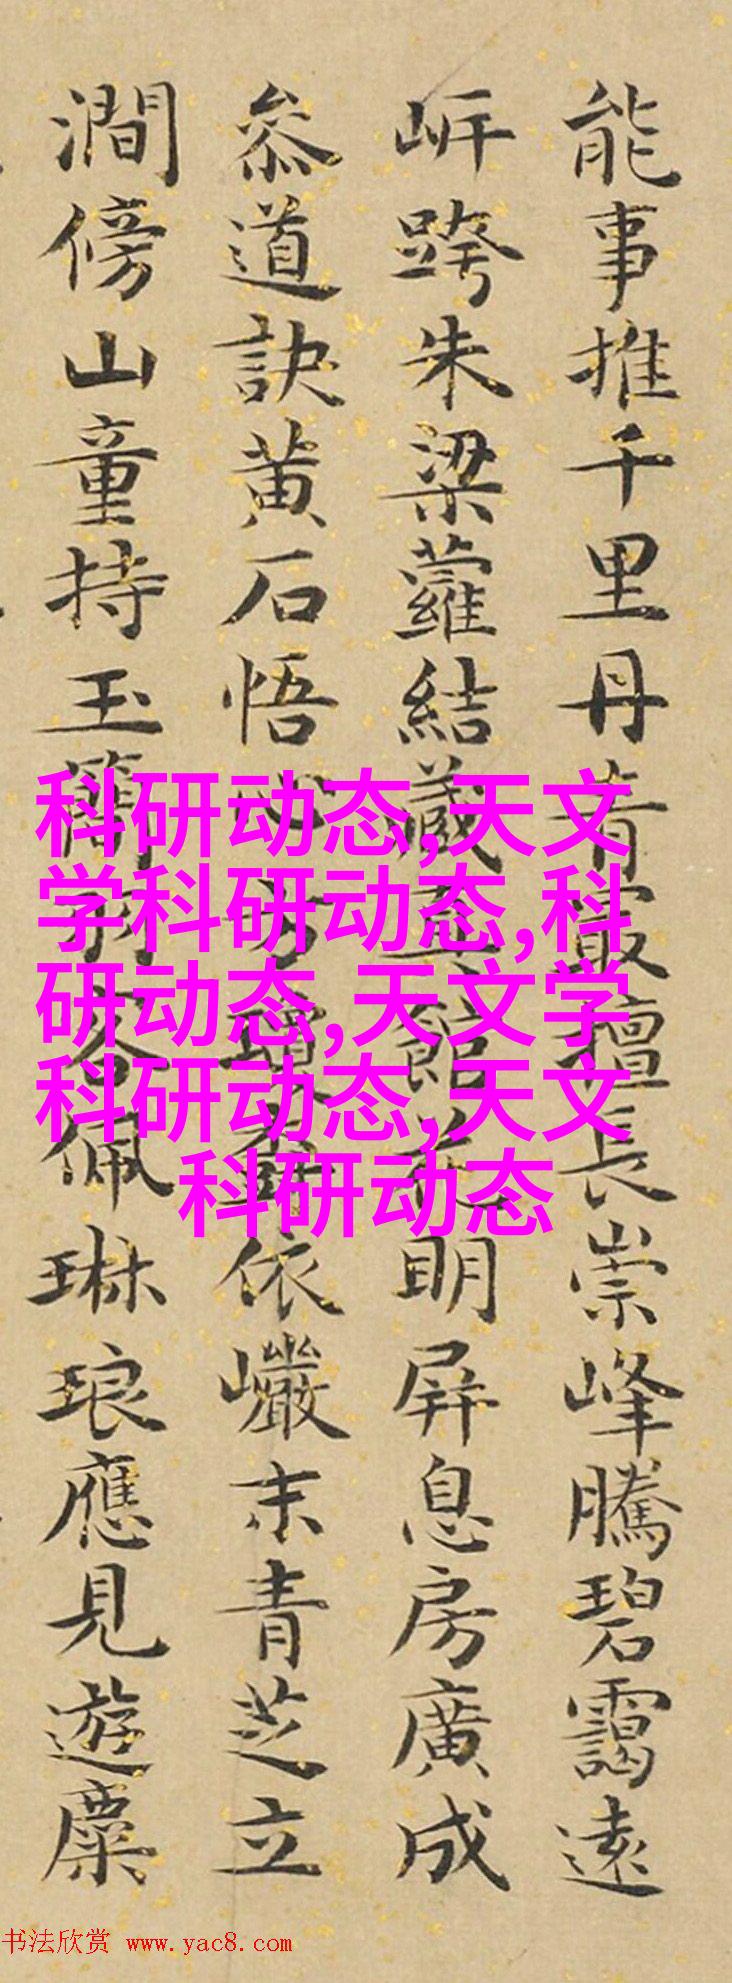 能事推千里丹青最擅長崇峰騰碧靄遠
岍跨朱梁蘿結藏亚館花明屏息房廣成
叅道訣黃石悟方依巘末青芝立
澗傍山童持玉簡羽客佩琳琅應見遊麋
科研动态,天文
学科研动态,科
研动态,天文学
科研动态,天文
科研动态
书法欣赏 www.yac8.com